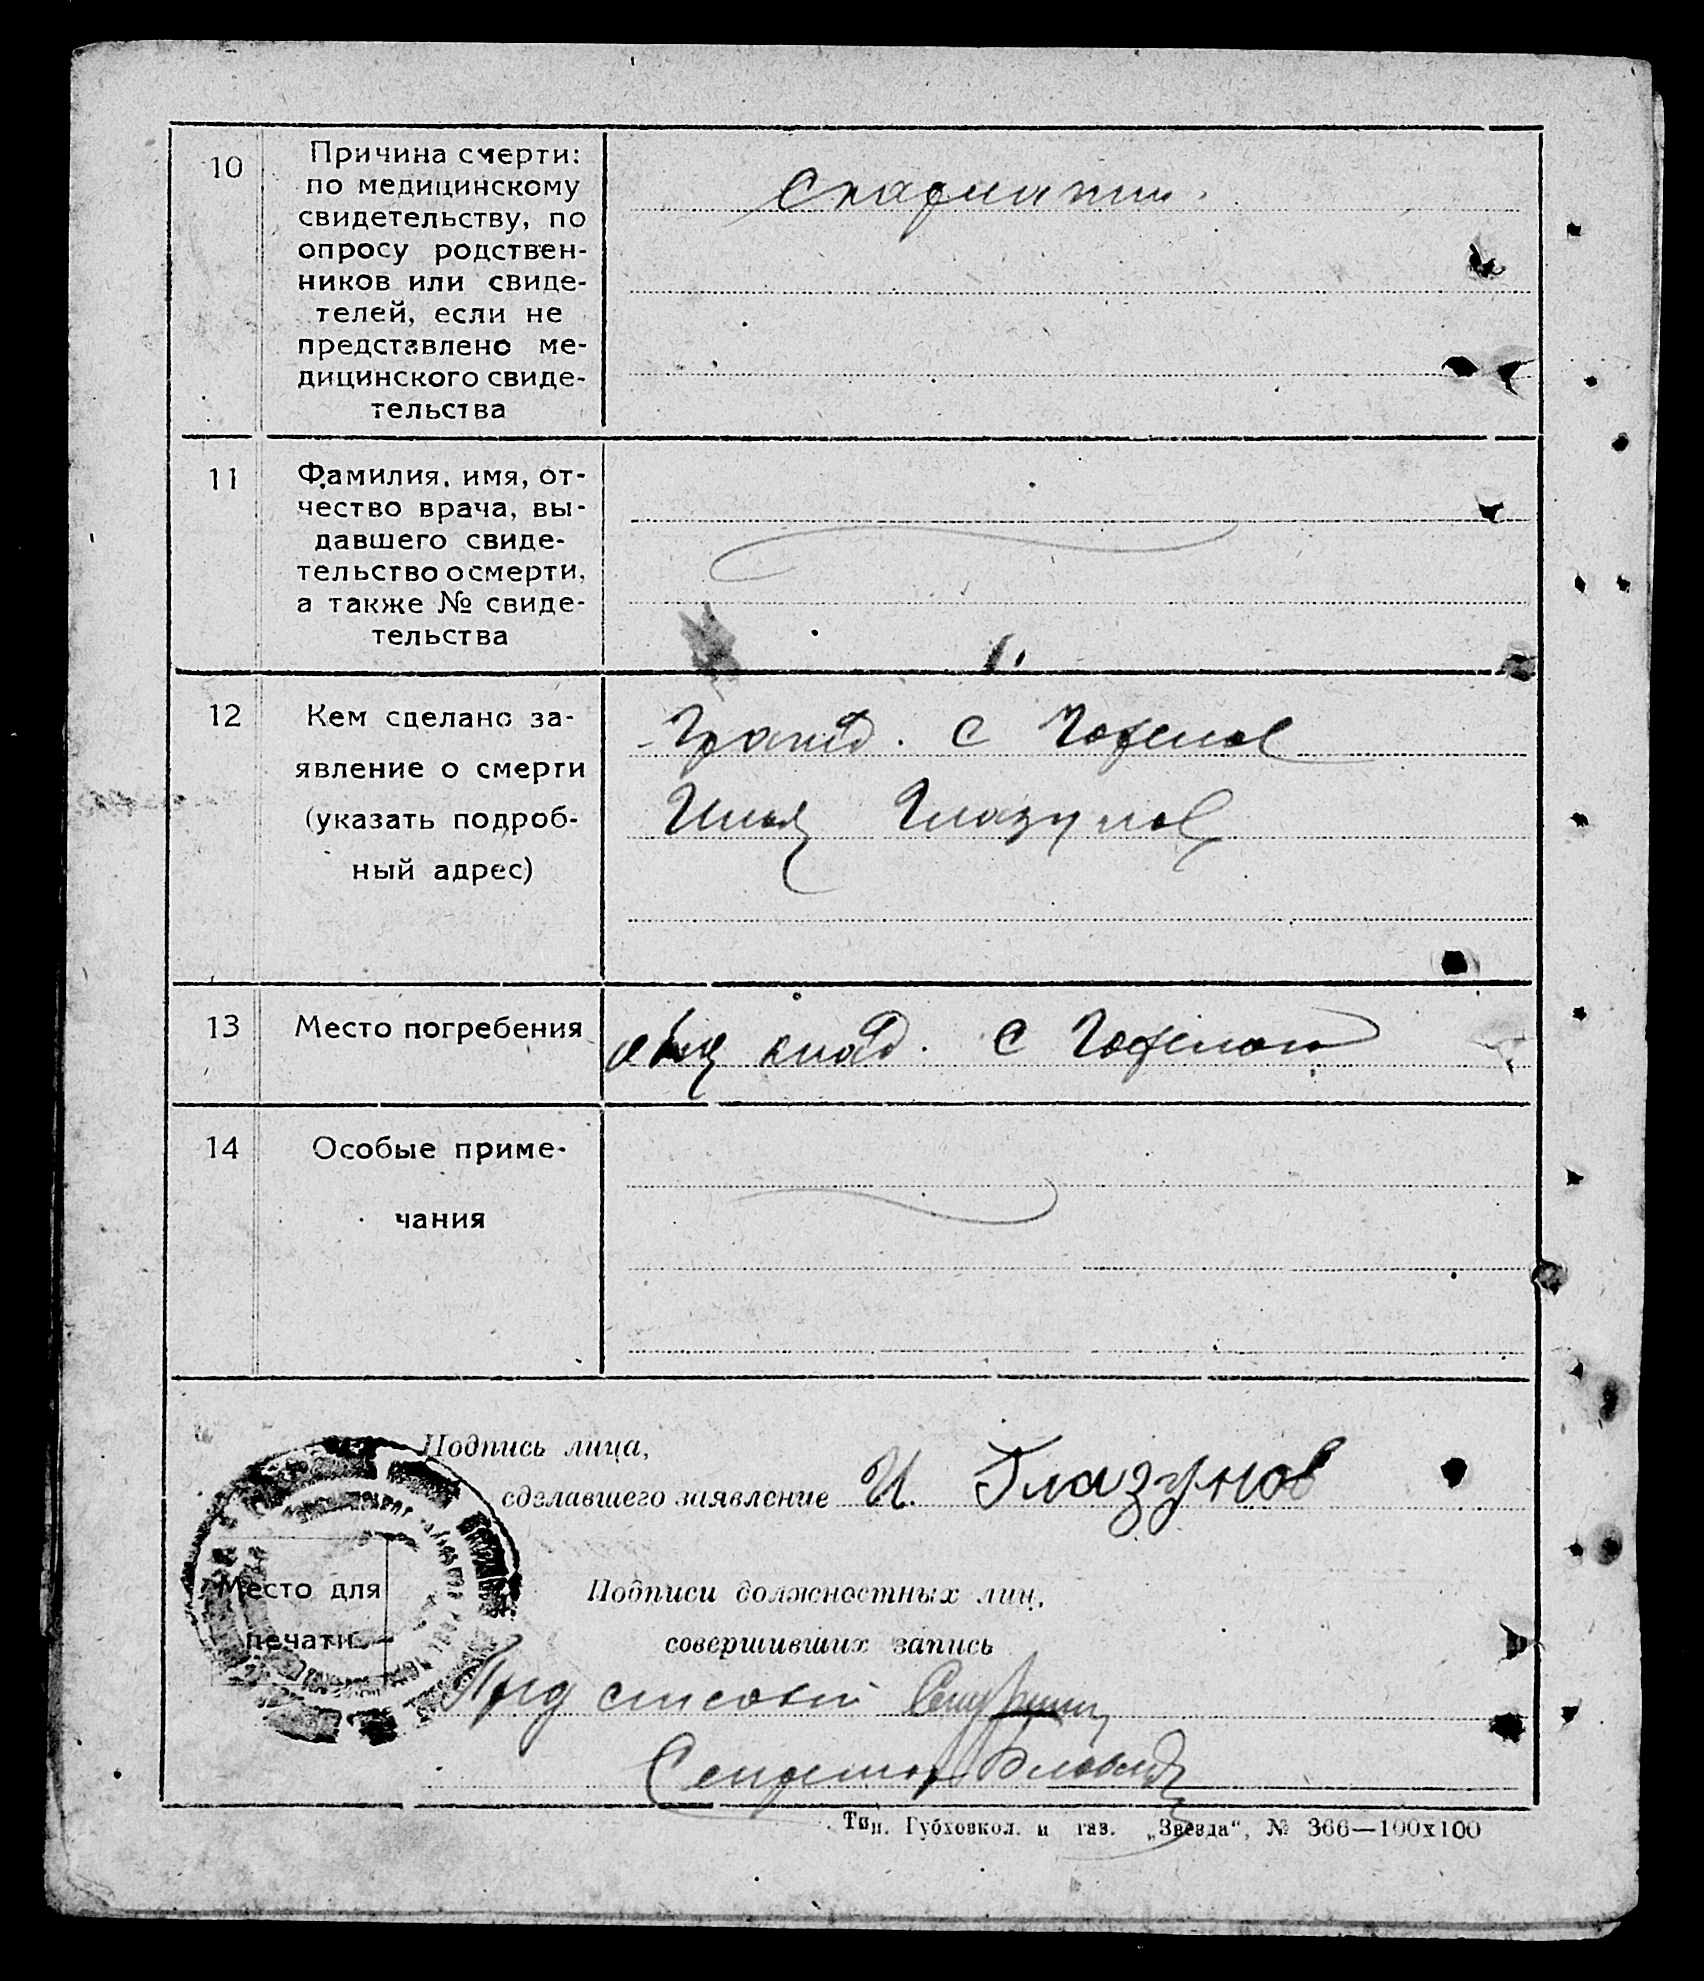 10
Причина смерти:
по медицинскому
свидетельству, по
опросу родствен-
ников или свиде-
телей, если не
представлено ме-
дицинского свиде-
тельства
Скарлатин
11
Фамилия, имя, от-
чество врача, вы-
давшего свиде-
тельство о смерти,
а также № свиде-
тельства
12
Кем сделано за-
явление о смерти
(указать подроб-
ный адрес)
Гражд. с
Илья Глазунов
13
Место погребения
общ кладб. с
14
Особые приме-
чания
Подпись лица,
сделавшего заявление И. Глазунов
Место для
печати
Подписи должностных лиц,
совершивших запись
Пред
Секретарь
Тип. Губховкол. и газ. „Звезда“, № 366—100х100